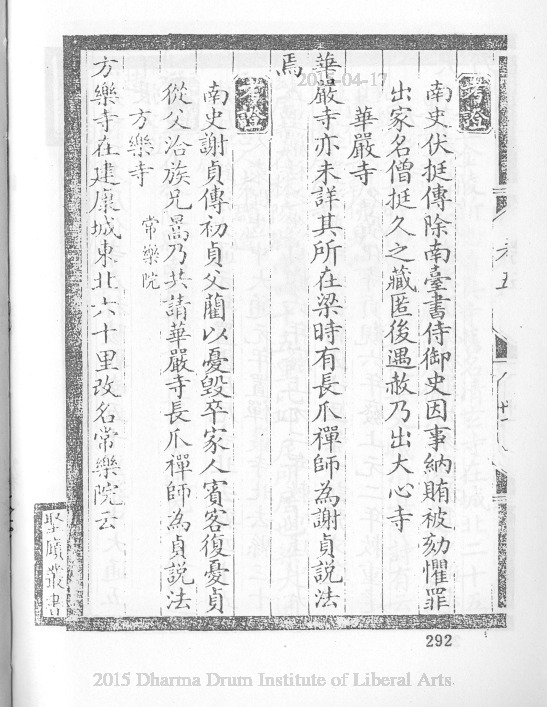 南史伏挺傳除南臺書侍御史因事納賄被劾懼罪
出家名僧挺久之藏匿後遇赦乃出大心寺
華嚴寺
華嚴寺亦未詳其所在梁時有長爪禪師為謝貞説法
焉
南史謝貞傳初貞父藺以憂毀卒家人賓客復憂貞
從父洽族兄暠乃共請華嚴寺長爪禪師為貞説法
方樂寺 常樂院
方樂寺在建康城東北六十里改名常樂院云
卷五
292
2015-04-17
2015 Dharma Drum Institute of Liberal Arts